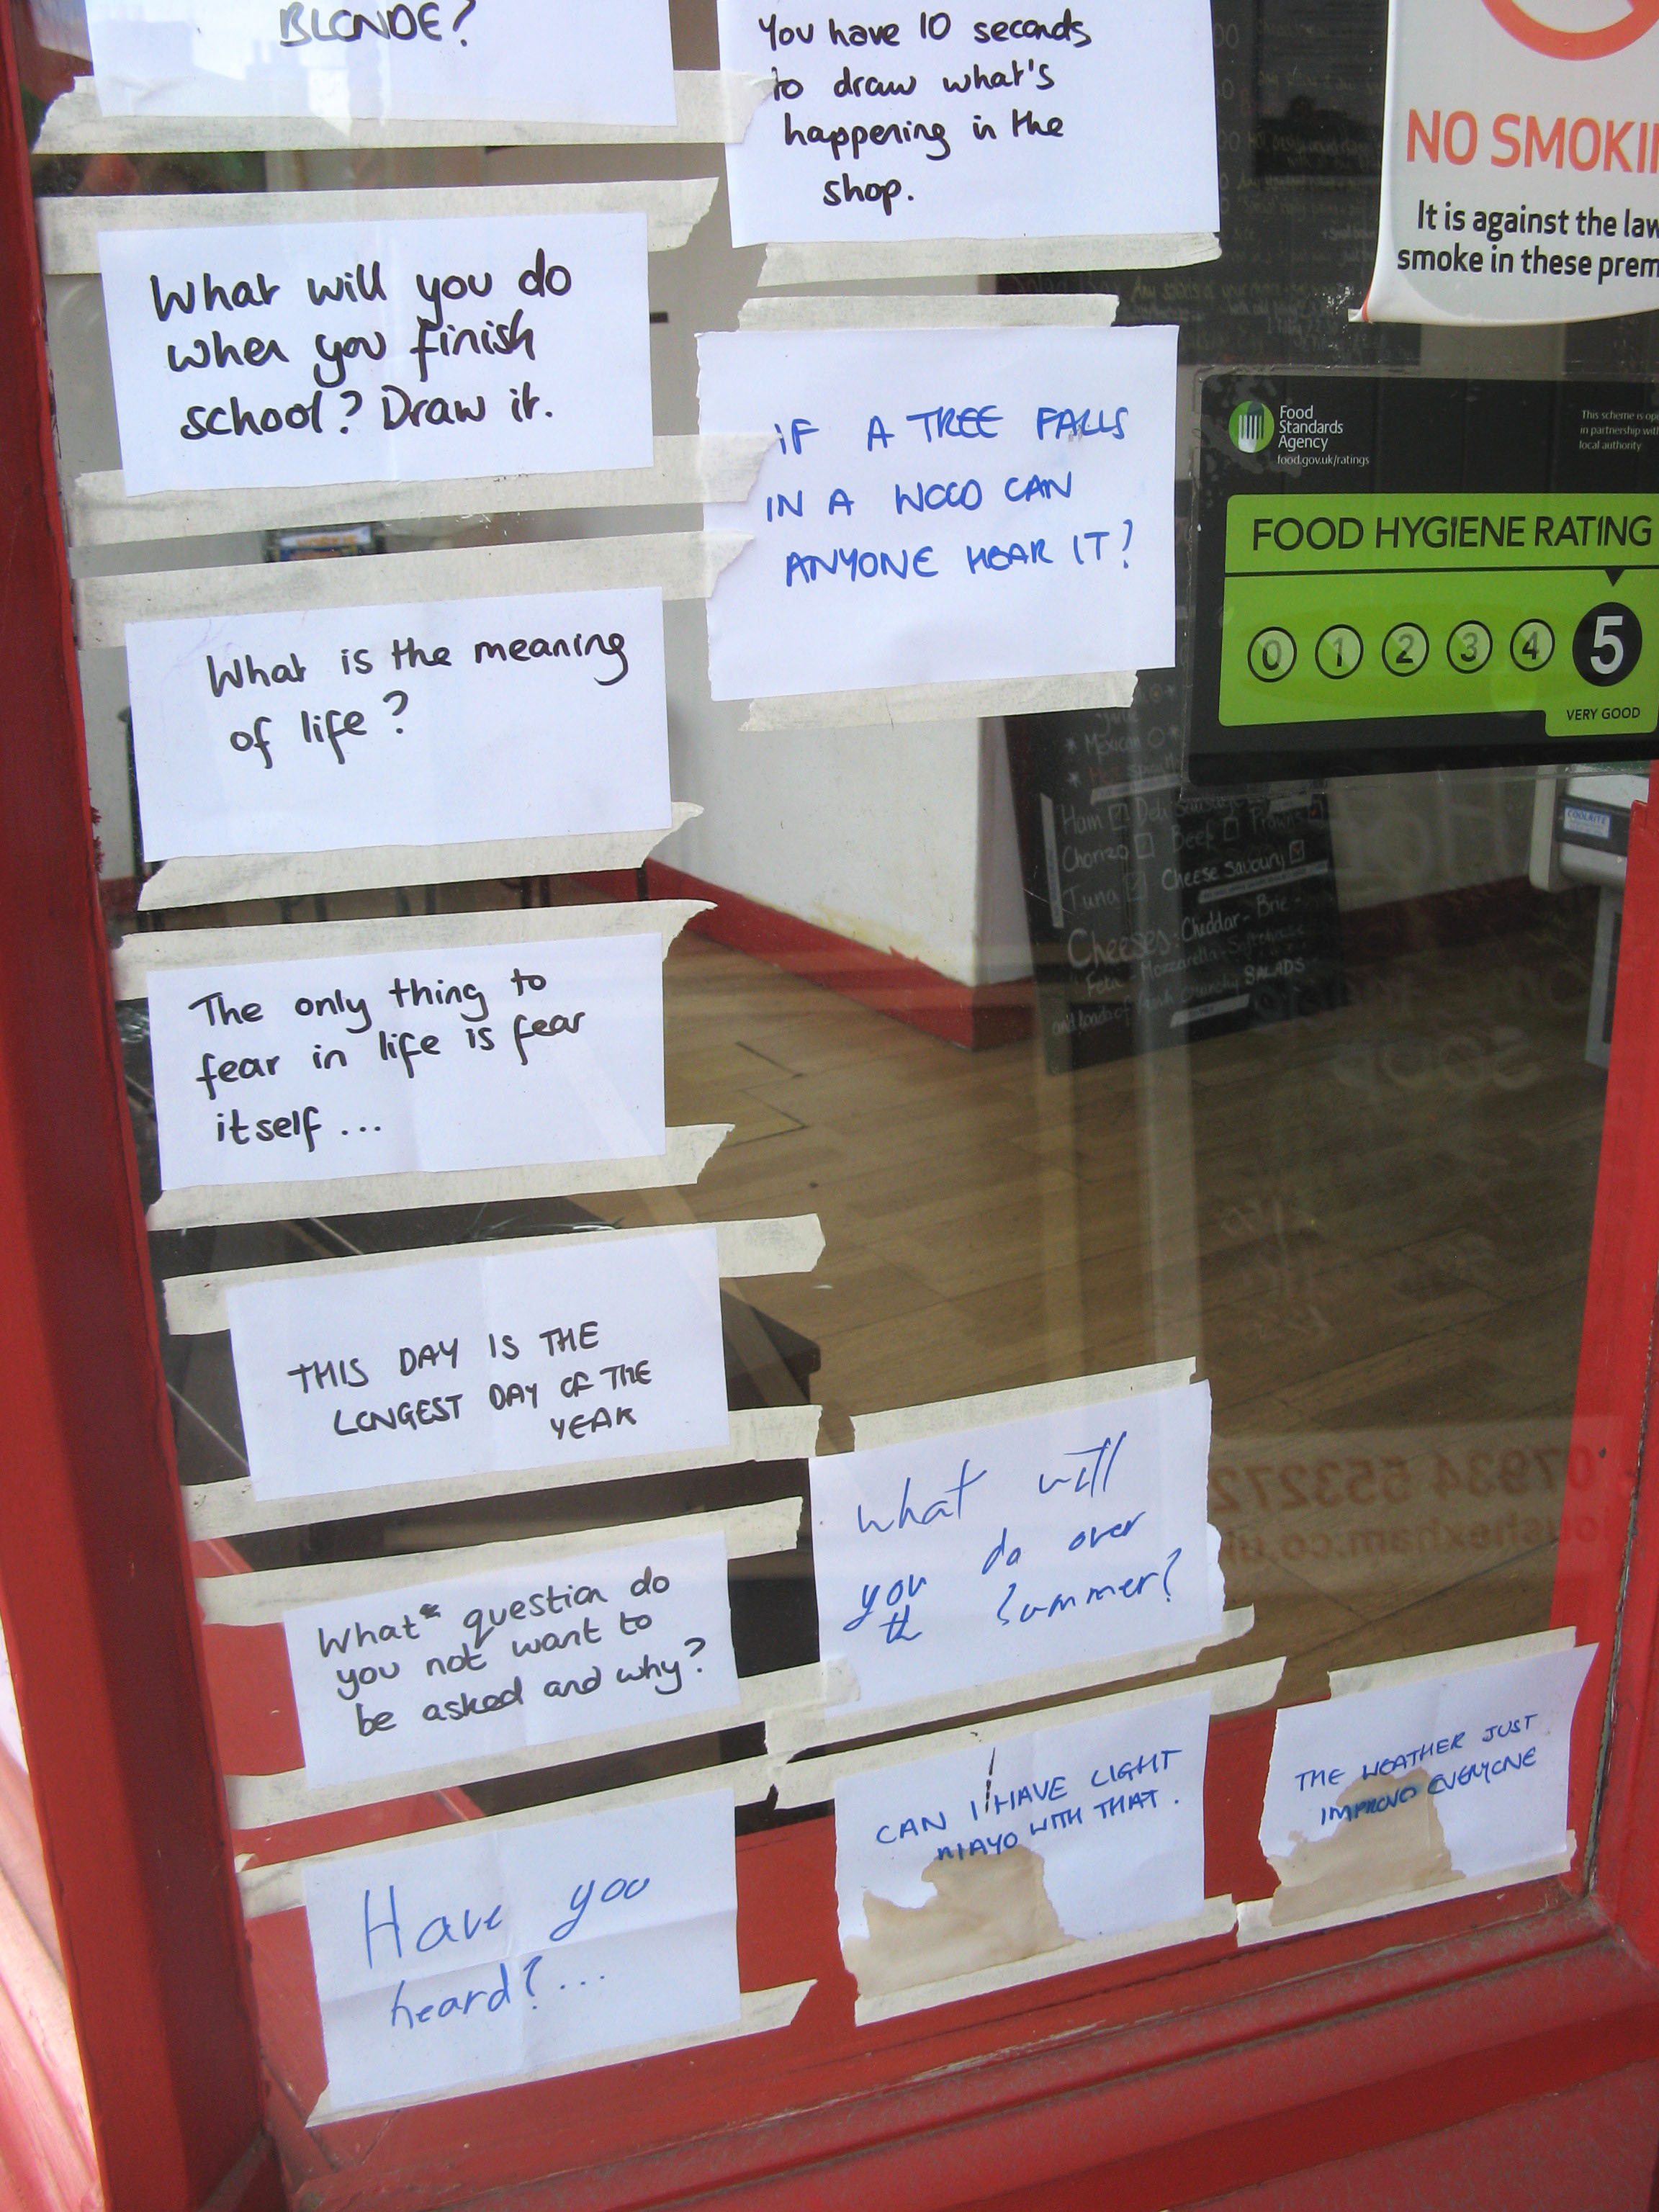 BLONDE?
What will you do
when you finish
school? Draw it.
What is the meaning
of life?
The only thing to
fear in life is fear
itself...
THIS DAY IS THE
LONGEST DAY OF THE
YEAR
What question do
you not want to
be asked and why?
Have you
heard?...
You have 10 seconds
to draw what's
happening in the
shop.
IF A TREE FALLS
IN A WOOD CAN
ANYONE HEAR IT?
what will
you do over
th summer?
CAN I HAVE LIGHT
MAYO WITH THAT.
THE WEATHER JUST
IMPROVES EVERYONE
NO SMOKIN
It is against the law
smoke in these prem
Food
Standards
Agency
food.gov.uk/ratings
This scheme is op
in partnership wit
local authority
FOOD HYGIENE RATING
0 1 2 3 4 5
VERY GOOD
Mexican
Ham Deli Sausage
Chorizo Beef Prawns
Tuna Cheese Savoury
Cheeses: Cheddar - Brie -
Feta - Mozzarella -
and loads of fresh crunchy SALADS
COOLRITE
SOUP
07934 553272
oushexham.co.uk